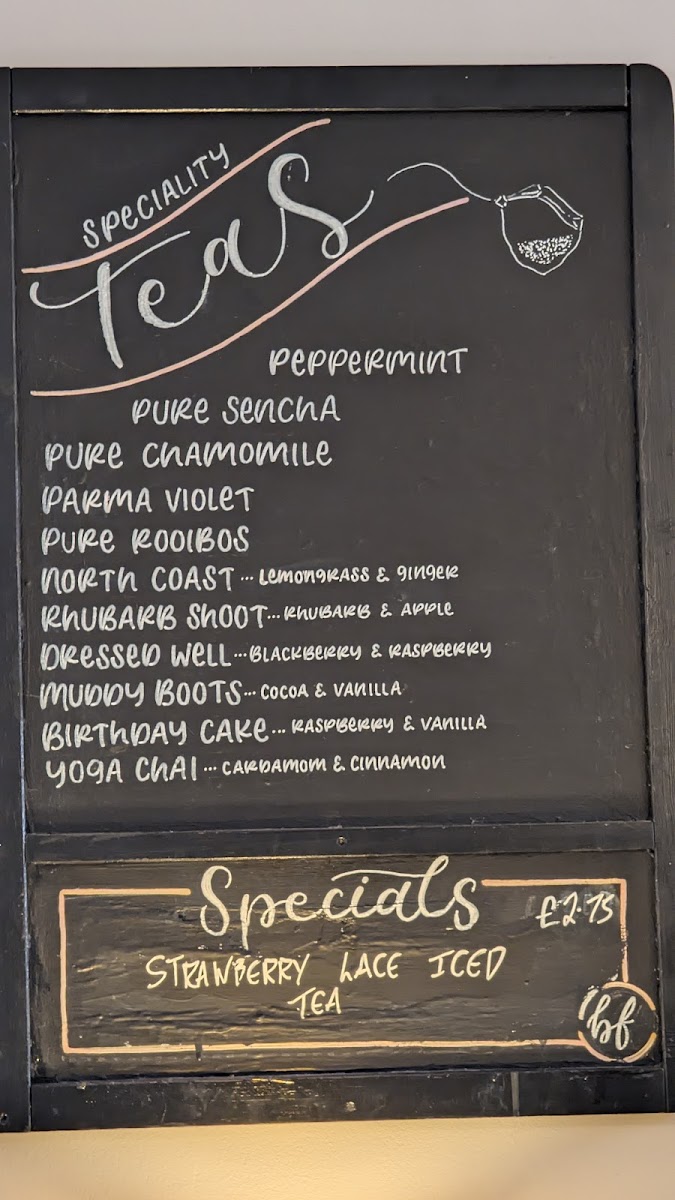 SPECIALITY
Teas
PEPPERMINT
PURE SENCHA
PURE CHAMOMILE
PARMA VIOLET
PURE ROOIBOS
NORTH COAST... LEMONGRASS & GINGER
RHUBARB SHOOT... RHUBARB & APPLE
DRESSED WELL... BLACKBERRY & RASPBERRY
MUDDY BOOTS... COCOA & VANILLA
BIRTHDAY CAKE... RASPBERRY & VANILLA
YOGA CHAI... CARDAMOM & CINNAMON
Specials
£2.75
STRAWBERRY LACE ICED
TEA
bf